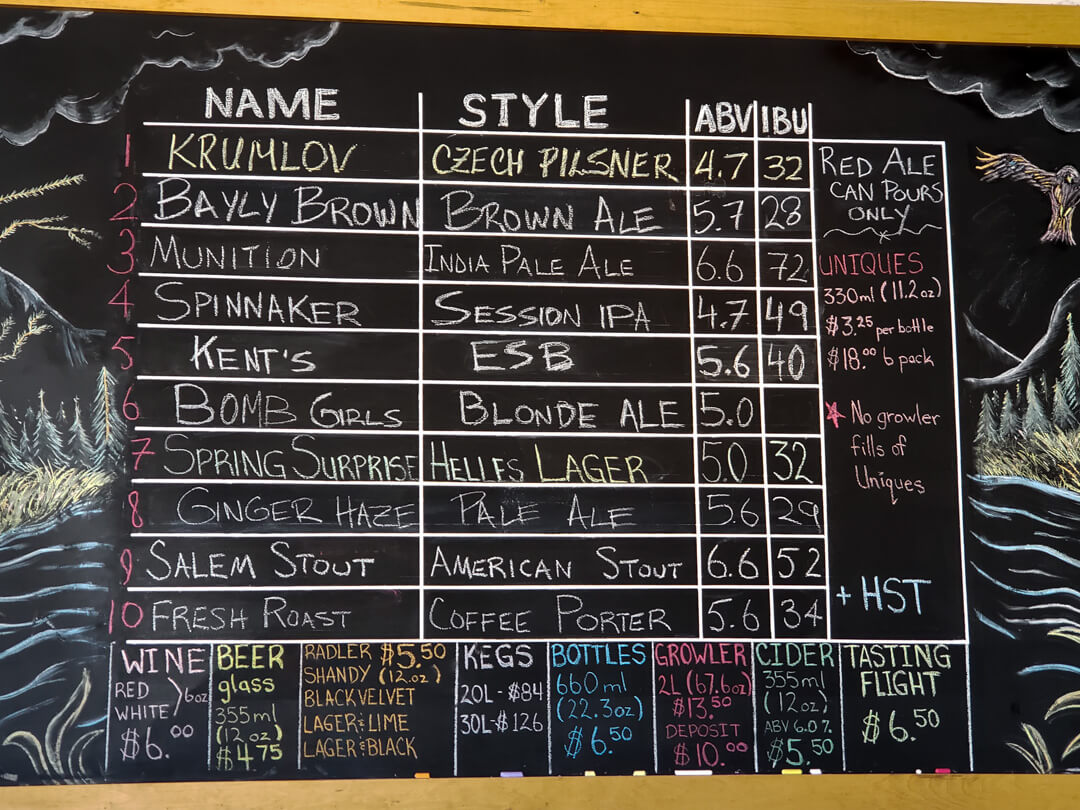 NAME STYLE ABV IBU
1 KRUMLOV CZECH PILSNER 4.7 32
2 BAYLY BROWN BROWN ALE 5.7 28
3 MUNITION INDIA PALE ALE 6.6 72
4 SPINNAKER SESSION IPA 4.7 49
5 KENT'S ESB 5.6 40
6 BOMB GIRLS BLONDE ALE 5.0
7 SPRING SURPRISE HELLES LAGER 5.0 32
8 GINGER HAZE PALE ALE 5.6 29
9 SALEM STOUT AMERICAN STOUT 6.6 52
10 FRESH ROAST COFFEE PORTER 5.6 34
RED ALE
CAN POURS
ONLY
UNIQUES
330ml (11.2oz)
$3.25 per bottle
$18.00 6 pack
* No growler
fills of
Uniques
+ HST
WINE
RED
WHITE
6oz
$6.00
BEER
glass
355ml
(12oz)
$4.75
RADLER $5.50
SHANDY (12.oz)
BLACK VELVET
LAGER & LIME
LAGER & BLACK
KEGS
20L - $84
30L - $126
BOTTLES
660ml
(22.3oz)
$6.50
GROWLER
2L (67.6oz)
$13.50
DEPOSIT
$10.00
CIDER
355ml
(12oz)
ABV 6.0%
$5.50
TASTING
FLIGHT
$6.50